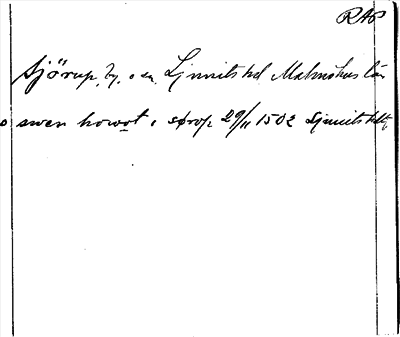 RAP
Sjörup, by. o sn. Ljunits hd Malmöhus län
o swen howot i sørop 29/11 1502 Ljunits hd